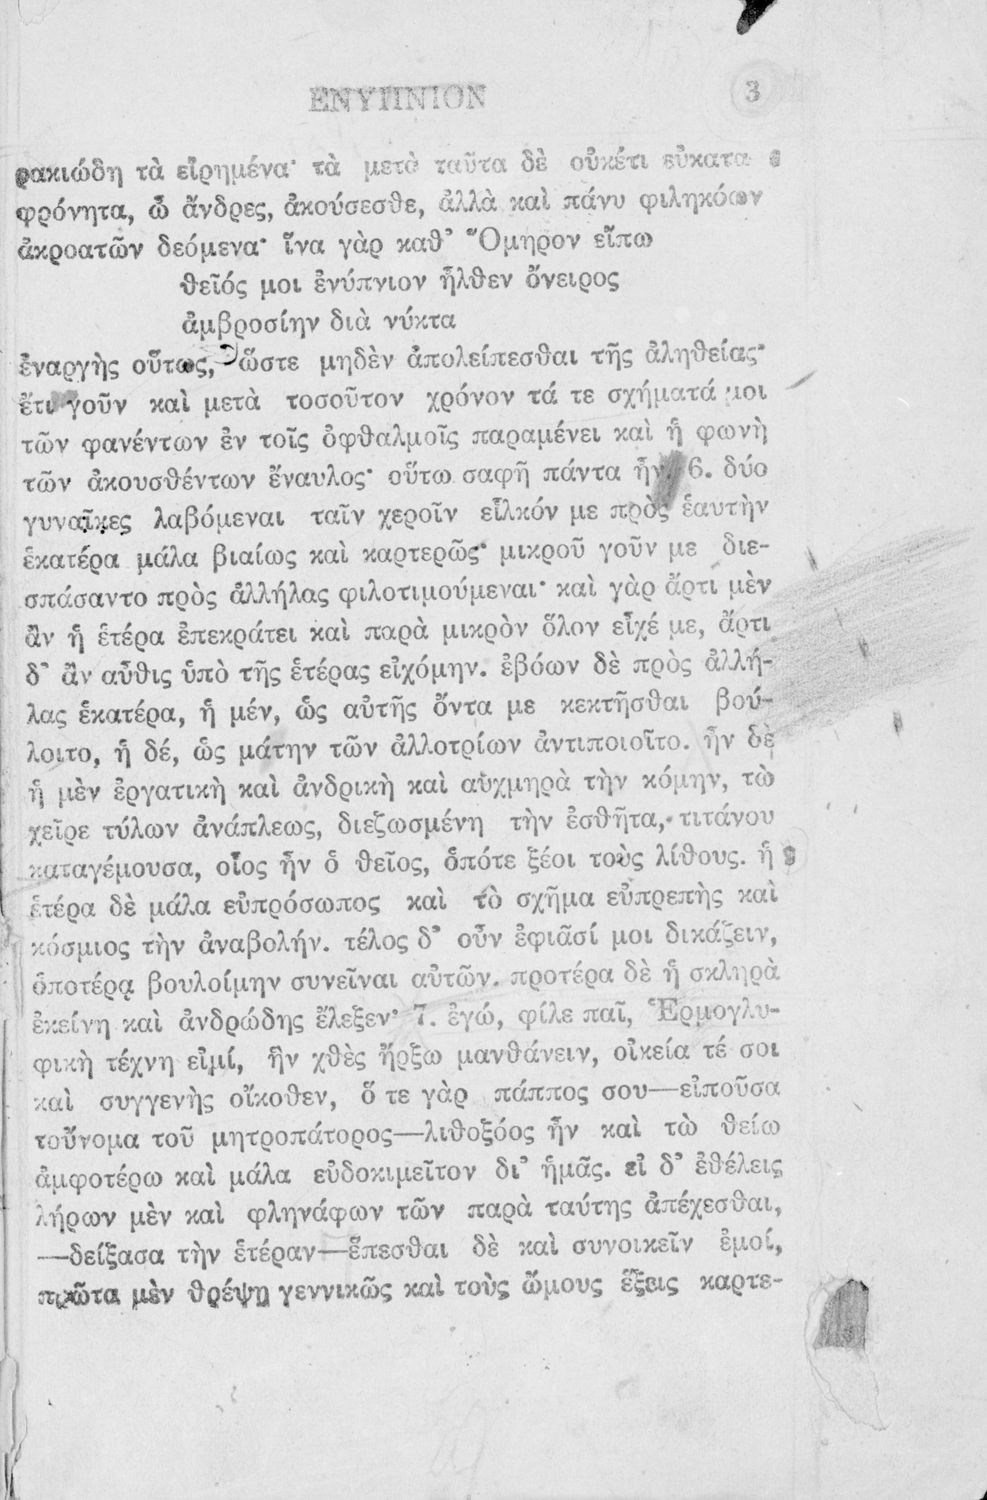 ΕΝΥΠΝΙΟΝ 3
ρακιώδη τὰ εἰρημένα· τὰ μετὰ ταῦτα δὲ οὐκέτι εὐκατα
φρόνητα, ὦ ἄνδρες, ἀκούσεσθε, ἀλλὰ καὶ πάνυ φιληκόων
ἀκροατῶν δεόμενα· ἵνα γὰρ καθ’ Ὅμηρον εἴπω
θεῖός μοι ἐνύπνιον ἦλθεν ὄνειρος
ἀμβροσίην διὰ νύκτα
ἐναργὴς οὕτως, ὥστε μηδὲν ἀπολείπεσθαι τῆς ἀληθείας·
ἔτι γοῦν καὶ μετὰ τοσοῦτον χρόνον τά τε σχήματά μοι
τῶν φανέντων ἐν τοῖς ὀφθαλμοῖς παραμένει καὶ ἡ φωνὴ
τῶν ἀκουσθέντων ἔναυλος· οὕτω σαφῆ πάντα ἦν. 6. δύο
γυναῖκες λαβόμεναι ταῖν χεροῖν εἷλκόν με πρὸς ἑαυτὴν
ἑκατέρα μάλα βιαίως καὶ καρτερῶς· μικροῦ γοῦν με διε-
σπάσαντο πρὸς ἀλλήλας φιλοτιμούμεναι· καὶ γὰρ ἄρτι μὲν
ἂν ἡ ἑτέρα ἐπεκράτει καὶ παρὰ μικρὸν ὅλον εἶχέ με, ἄρτι
δ’ ἂν αὖθις ὑπὸ τῆς ἑτέρας εἰχόμην. ἐβόων δὲ πρὸς ἀλλή-
λας ἑκατέρα, ἡ μέν, ὡς αὐτῆς ὄντα με κεκτῆσθαι βού-
λοιτο, ἡ δέ, ὡς μάτην τῶν ἀλλοτρίων ἀντιποιοῖτο. ἦν δὲ
ἡ μὲν ἐργατικὴ καὶ ἀνδρικὴ καὶ αὐχμηρὰ τὴν κόμην, τὼ
χεῖρε τύλων ἀνάπλεως, διεζωσμένη τὴν ἐσθῆτα, τιτάνου
καταγέμουσα, οἷος ἦν ὁ θεῖος, ὁπότε ξέοι τοὺς λίθους. ἡ
ἑτέρα δὲ μάλα εὐπρόσωπος καὶ τὸ σχῆμα εὐπρεπὴς καὶ
κόσμιος τὴν ἀναβολήν. τέλος δ’ οὖν ἐφιᾶσί μοι δικάζειν,
ὁποτέρᾳ βουλοίμην συνεῖναι αὐτῶν. προτέρα δὲ ἡ σκληρὰ
ἐκείνη καὶ ἀνδρώδης ἔλεξεν· 7. ἐγώ, φίλε παῖ, Ἑρμογλυ-
φικὴ τέχνη εἰμί, ἣν χθὲς ἤρξω μανθάνειν, οἰκεία τέ σοι
καὶ συγγενὴς οἴκοθεν, ὅ τε γὰρ πάππος σου—εἰποῦσα
τοὔνομα τοῦ μητροπάτορος—λιθοξόος ἦν καὶ τὼ θείω
ἀμφοτέρω καὶ μάλα εὐδοκιμεῖτον δι’ ἡμᾶς. εἰ δ’ ἐθέλεις
λήρων μὲν καὶ φληνάφων τῶν παρὰ ταύτης ἀπέχεσθαι,
—δείξασα τὴν ἑτέραν—ἕπεσθαι δὲ καὶ συνοικεῖν ἐμοί,
πρῶτα μὲν θρέψῃ γεννικῶς καὶ τοὺς ὤμους ἕξεις καρτε-